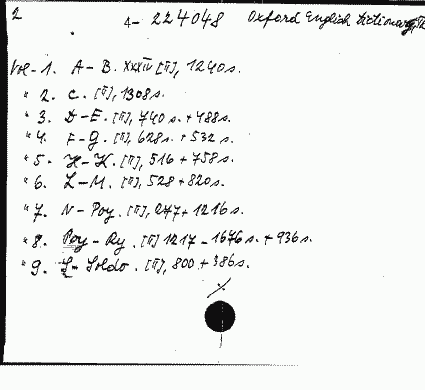 2
A- 224048 Oxford English Dictionary, Th
Vol-1. A-B. XXXIV [II], 1240s.
" 2. C. [II], 1308s.
" 3. D-E. [II], 740s. + 488s.
" 4. F-G. [II], 628s. + 532s.
" 5. H-K. [II], 516 + 758s.
" 6. L-M. [II], 528 + 820s.
" 7. N-Poy. [II], 277 + 1216s.
" 8. Poy-Ry. [II] 1217-1676s. + 936s.
" 9. S-Soldo. [II], 800 + 386s.